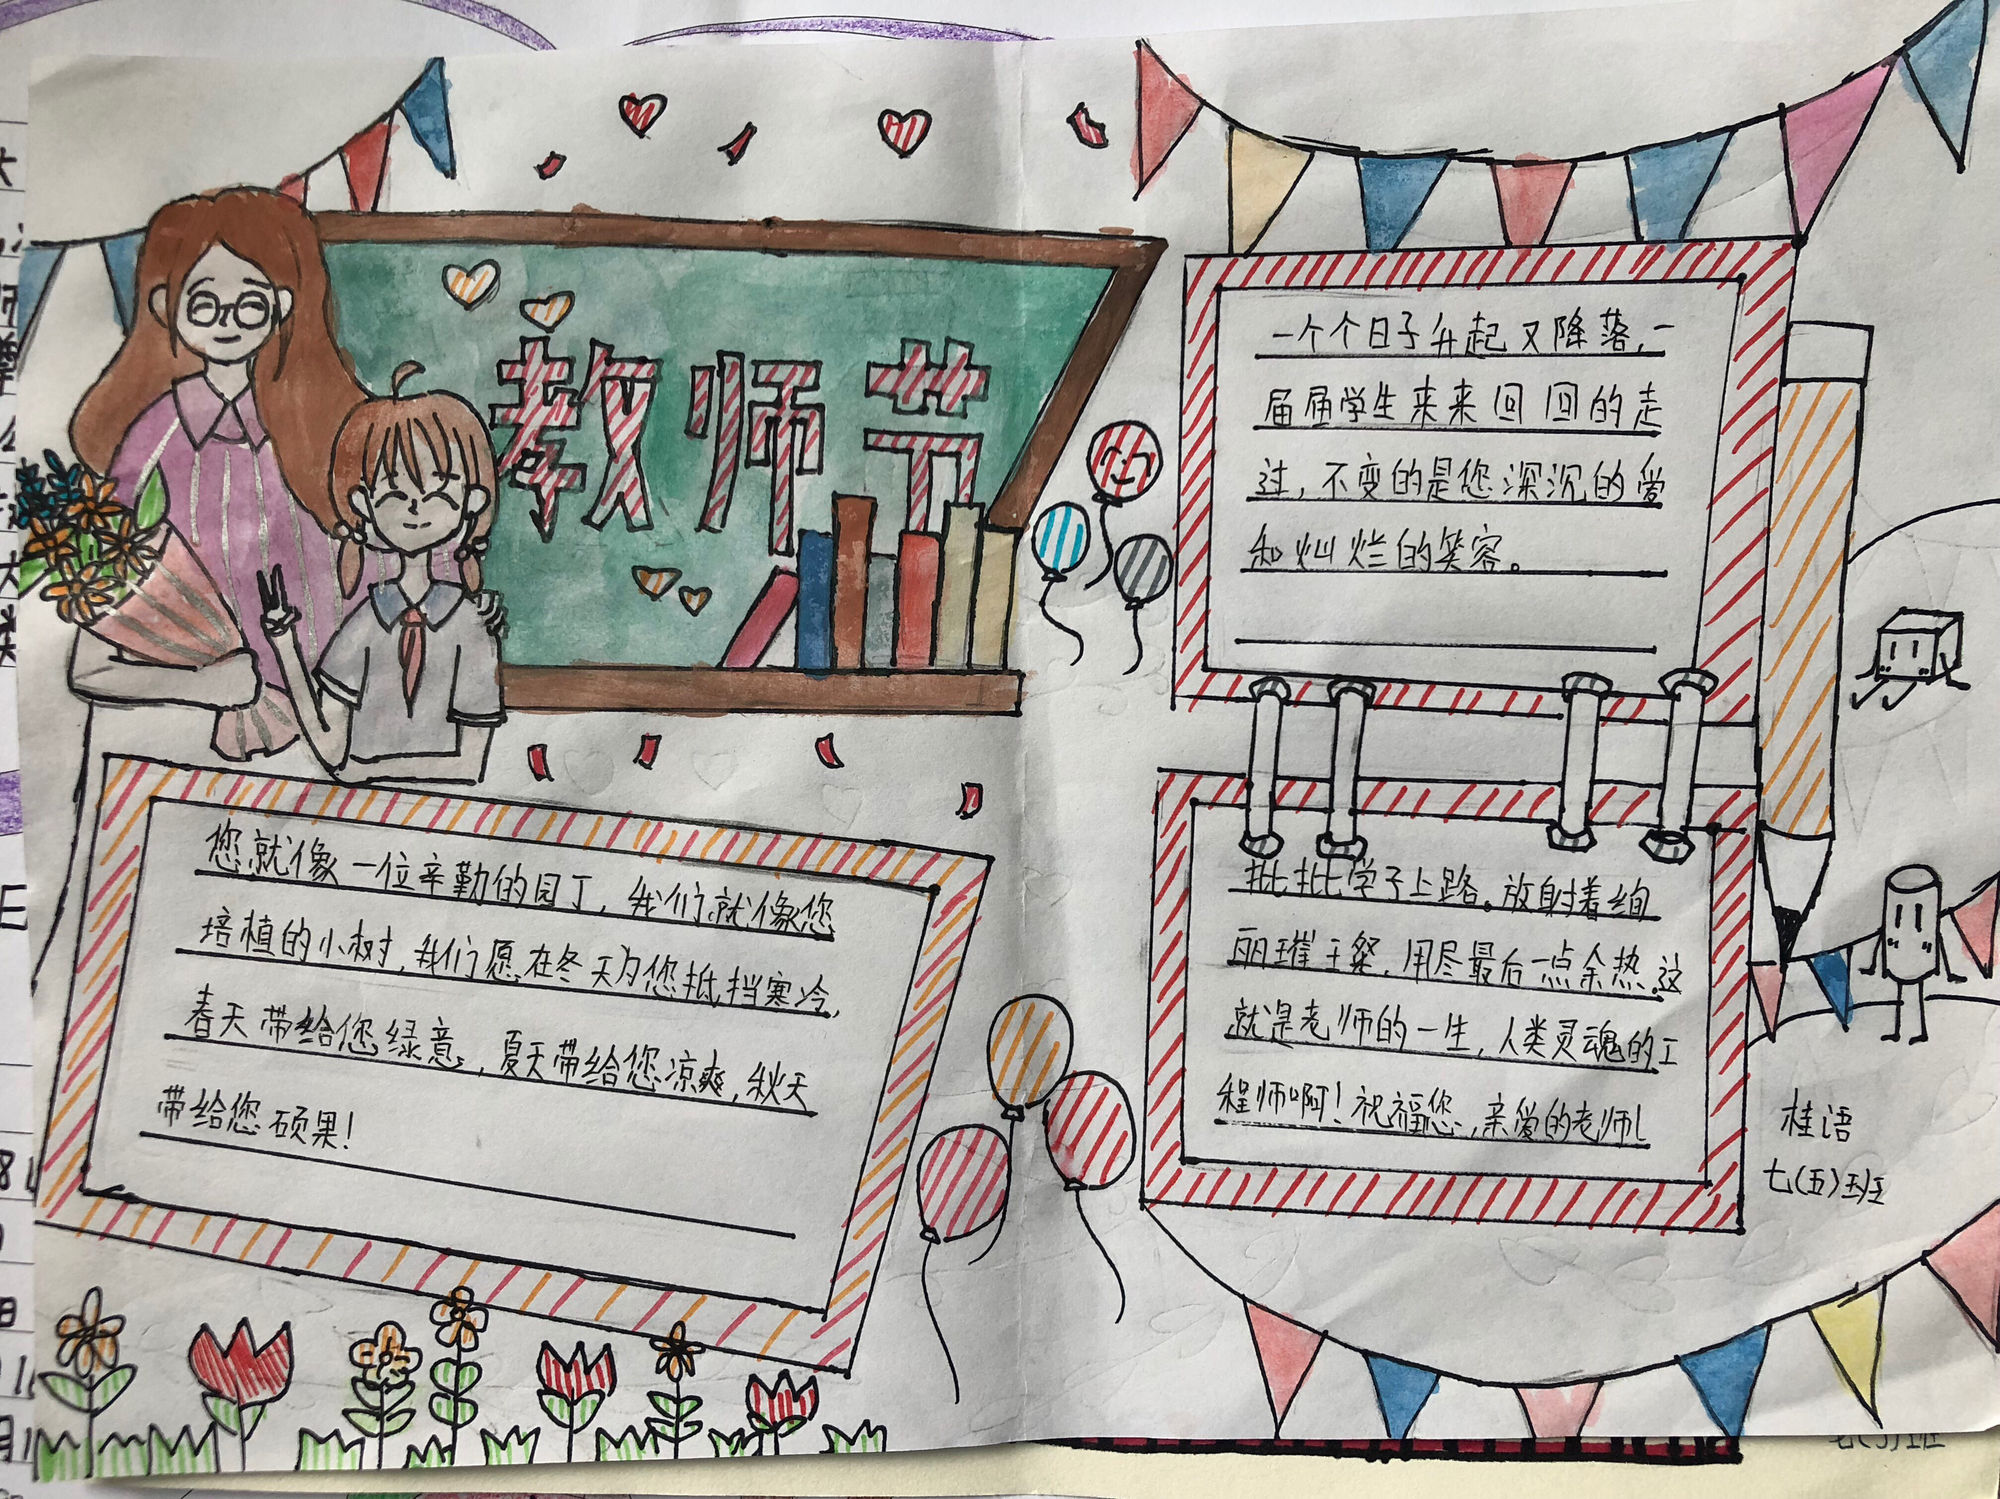 教师节
一个个日子升起又降落,一
届届学生来来回回的走
过,不变的是您深沉的爱
和灿烂的笑容。
您就像一位辛勤的园丁,我们就像您
培植的小树,我们愿在冬天为您抵挡寒冷,
春天带给您绿意,夏天带给您凉爽,秋天
带给您硕果!
批批学子上路。放射着绚
丽璀璨,用尽最后一点余热。这
就是老师的一生,人类灵魂的工
程师啊!祝福您,亲爱的老师!
桂语
七(五)班